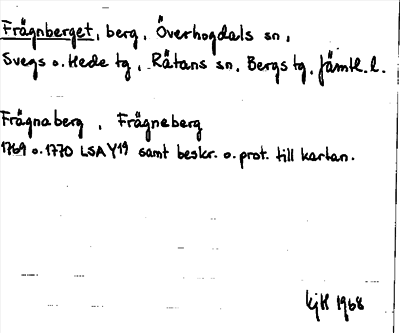 Frägnberget, berg, Överhogdals sn,
Svegs o. Hede tg, Rätans sn, Bergs tg, Jämtl. l.
Frägnaberg, Frägneberg
1769 o. 1770 LSA Y19 samt beskr. o. prot. till kartan.
KjH 1968